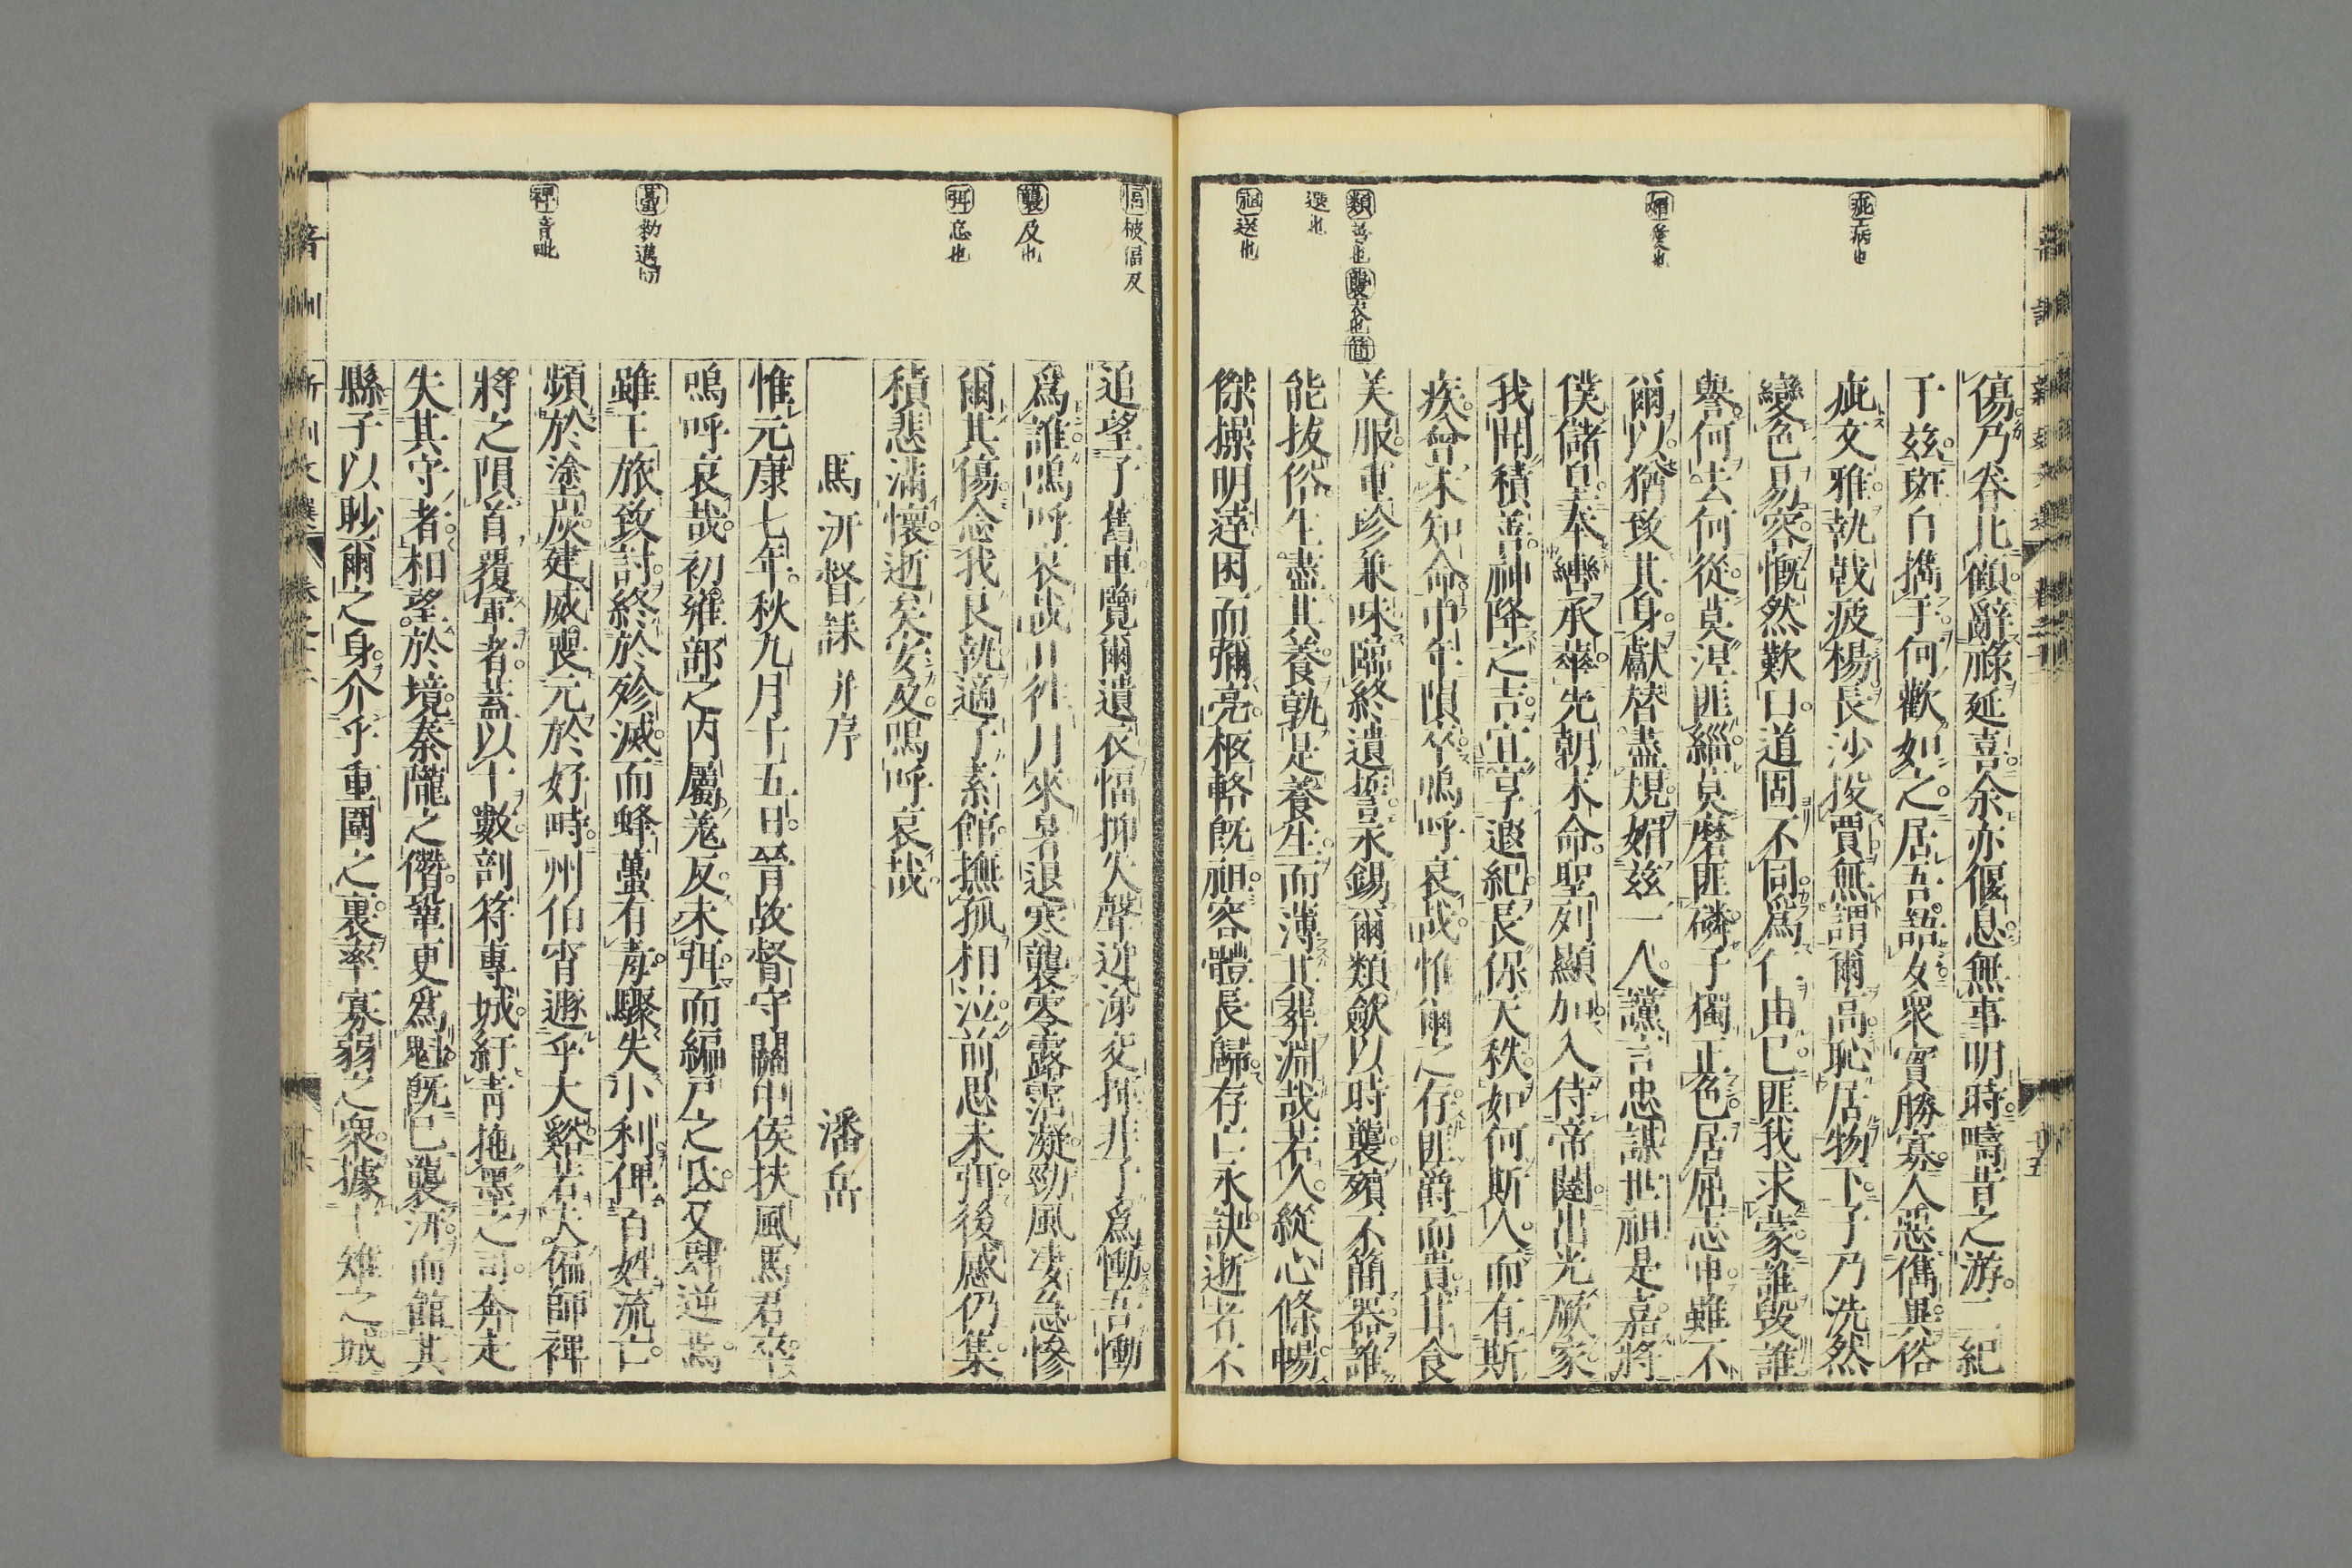 疵病也
媚愛也
類善也襲衣也簡
選也
祖送也
傷乃眷北顧辭祿延喜余亦偃息無事明時疇昔之游二紀
于茲斑白攜手何歡如之居吾語汝衆實勝寡人惡儁異俗
疵文雅執戟疲楊長沙投賈無謂爾高恥居物下子乃洗然
變色易容慨然歎曰道固不同爲仁由己匪我求蒙誰毀誰
譽何去何從莫涅匪緇莫磨匪磷子獨正色居屈志申雖不
爾以猶致其身獻替盡規媚茲一人讜言忠謀世祖是嘉將
僕儲皇奉轡承華先朝末命聖列顯加入侍帝闥出光厥家
我聞積善神降之吉宜享遐紀長保天秩如何斯人而有斯
疾曾未知命中年隕卒嗚呼哀哉惟爾之存匪爵而貴甘食
美服重珍兼味臨終遺誓永錫爾類斂以時襲殯不簡器誰
能拔俗生盡其養孰是養生而薄其葬淵哉若人縱心條暢
傑操明達困而彌亮柩輅既祖容體長歸存亡永訣逝者不
愊被逼反
襲及也
弭息也
蠆勑邁切
裨音毗
追望子舊車覽爾遺衣愊抑失聲迸涕交揮非子爲慟吾慟
爲誰嗚呼哀哉日往月來暑退寒襲零露霑凝勁風凄急慘
爾其傷念我良執適子素館撫孤相泣前思未弭後感仍集
積悲滿懷逝矣安及嗚呼哀哉
馬汧督誄并序　潘岳
惟元康七年秋九月十五日晉故督守關中侯扶風馬君卒
嗚呼哀哉初雍部之内屬羗反未弭而編戸之氐又肆逆焉
雖王旅致討終於殄滅而蜂蠆有毒驟失小利俾百姓流亡
頻於塗炭建威喪元於好畤州伯宵遯乎大谿若夫偏師裨
將之隕首覆軍者蓋以十數剖符專城紆青拖墨之司奔走
失其守者相望於境秦隴之僭鞏更爲魁既已襲汧而館其
縣子以眇爾之身介乎重圍之裏率寡弱之衆據十雉之城